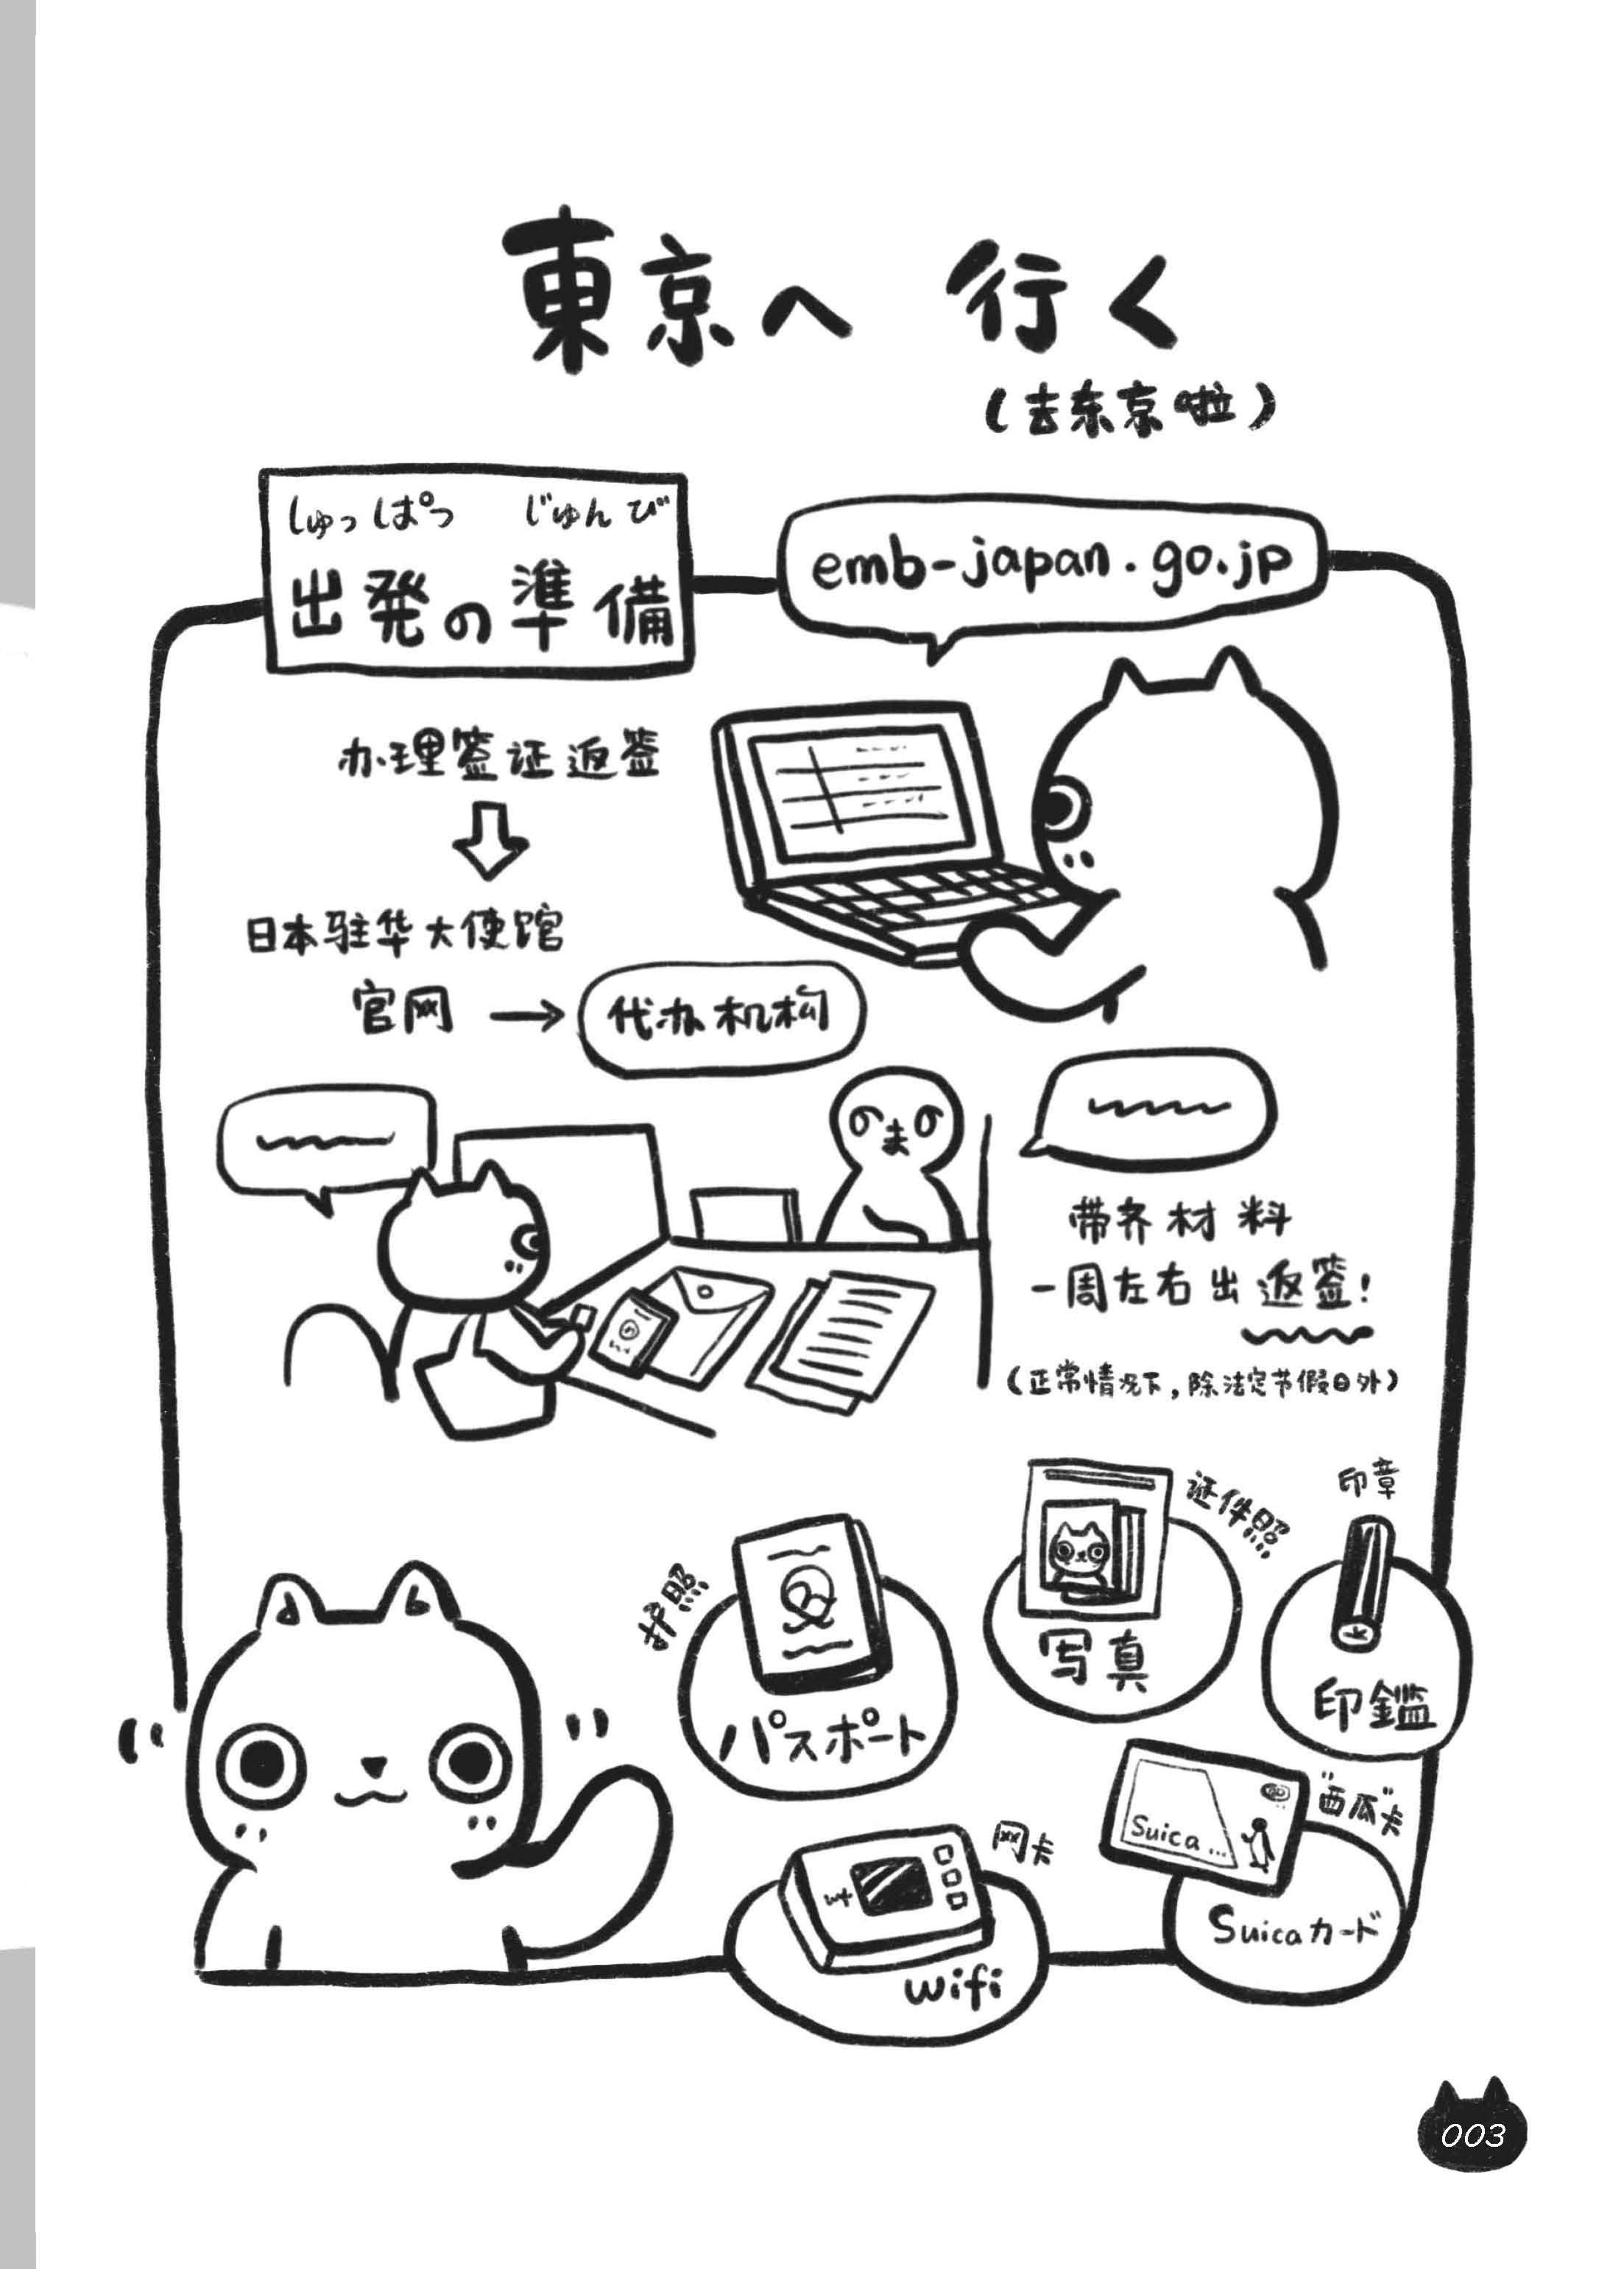 東京へ 行く
(去东京啦)
しゅっぱつ じゅんび
出発の準備
emb-japan.go.jp
办理签证返签
日本驻华大使馆
官网 → 代办机构
带齐材料
一周左右出返签!
(正常情况下,除法定节假日外)
护照
パスポート
证件照
写真
印章
印鑑
网卡
wifi
"西瓜"卡
Suica...
Suicaカード
003